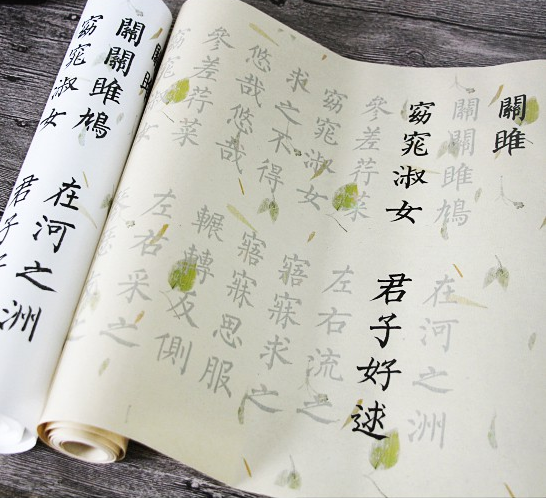 關雎
關關雎鳩 在河之洲
窈窕淑女 君子好逑
參差荇菜 左右流之
窈窕淑女 寤寐求之
求之不得 寤寐思服
悠哉悠哉 輾轉反側
參差荇菜 左右采之
關關雎鳩 在河之洲
窈窕淑女 君子